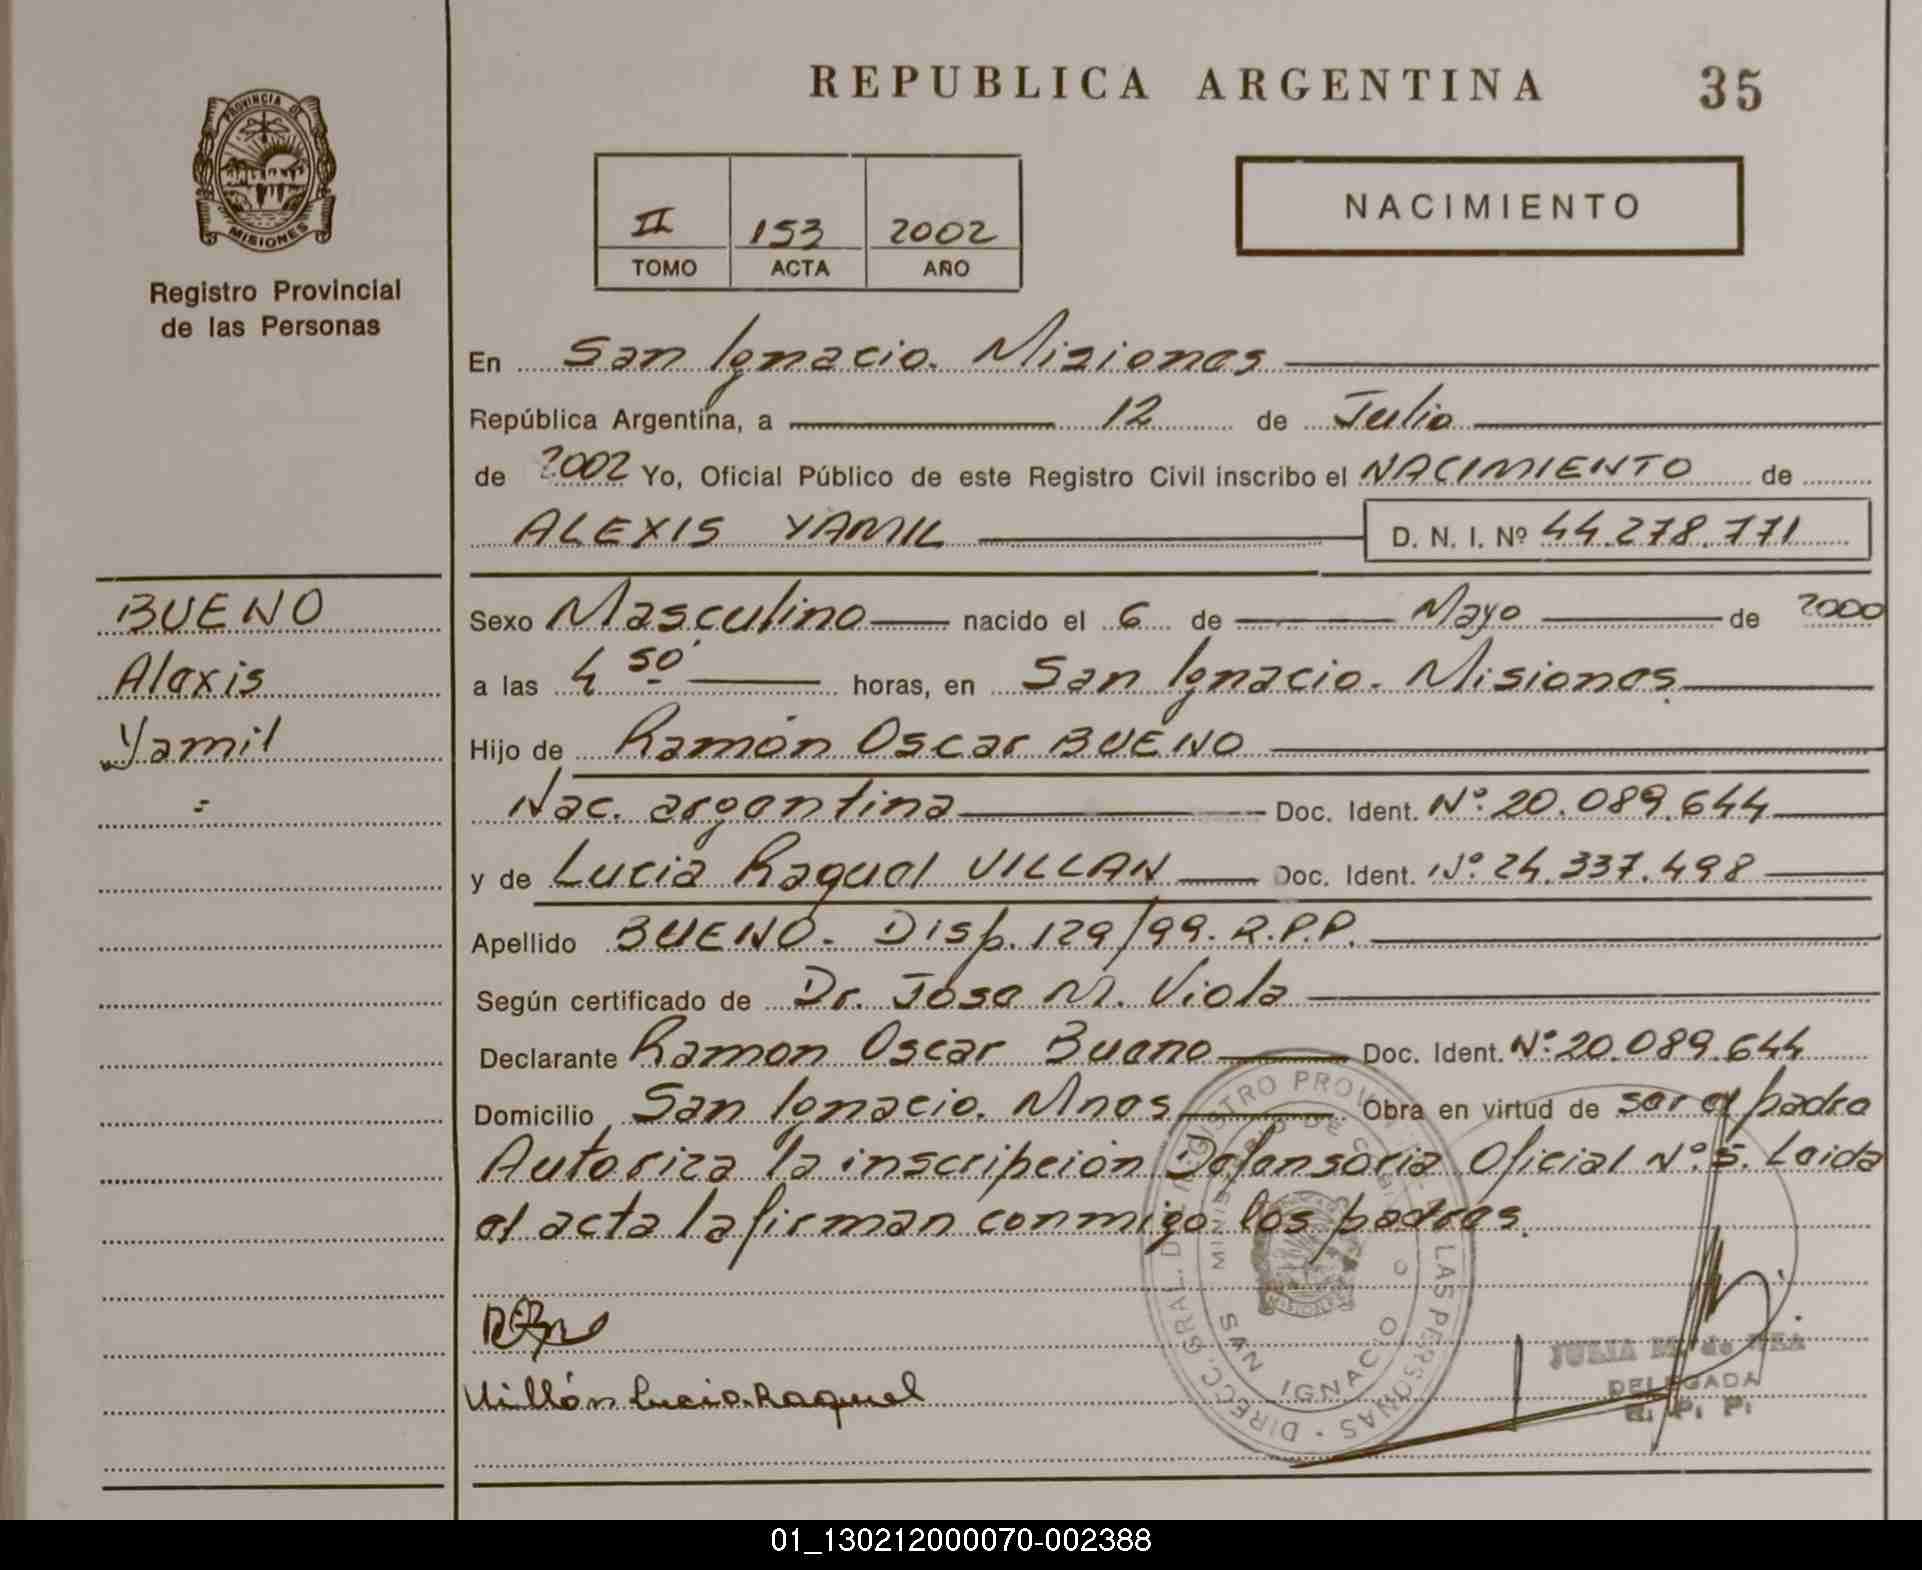 REPUBLICA ARGENTINA 35
PROVINCIA DE
MISIONES
Registro Provincial
de las Personas
II 153 2002
TOMO ACTA AÑO
NACIMIENTO
En San Ignacio. Misiones
República Argentina, a 12 de Julio
de 2002 Yo, Oficial Público de este Registro Civil inscribo el NACIMIENTO de
ALEXIS YAMIL D. N. I. Nº 44.278.771
BUENO
Alexis
Yamil
=
Sexo Masculino nacido el 6 de Mayo de 2000
a las 4 50' horas, en San Ignacio. Misiones
Hijo de Ramón Oscar BUENO
Nac. argentina Doc. Ident. Nº 20.089.644
y de Lucia Raquel VILLAN Doc. Ident. Nº 24.337.498
Apellido BUENO. Disp. 129/99. R.P.P.
Según certificado de Dr. Jose M. Viola
Declarante Ramon Oscar Bueno Doc. Ident. Nº 20.089.644
Domicilio San Ignacio. Mnes Obra en virtud de ser el padre
Autoriza la inscripción Defensoria Oficial Nº 5. Leida
el acta la firman conmigo los padres.
Villán Lucia Raquel
DIRECC. GRAL. DEL REGISTRO PROVINCIAL DE LAS PERSONAS
SAN IGNACIO
JULIA M. de
DELEGADA
R. P. P.
01_130212000070-002388